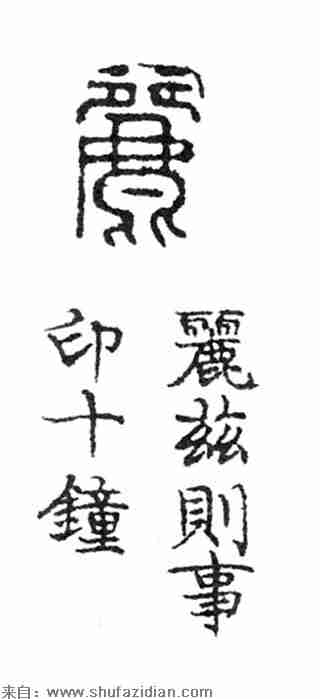 麗
麗茲則事
印十鐘
来自：www.shufazidian.com